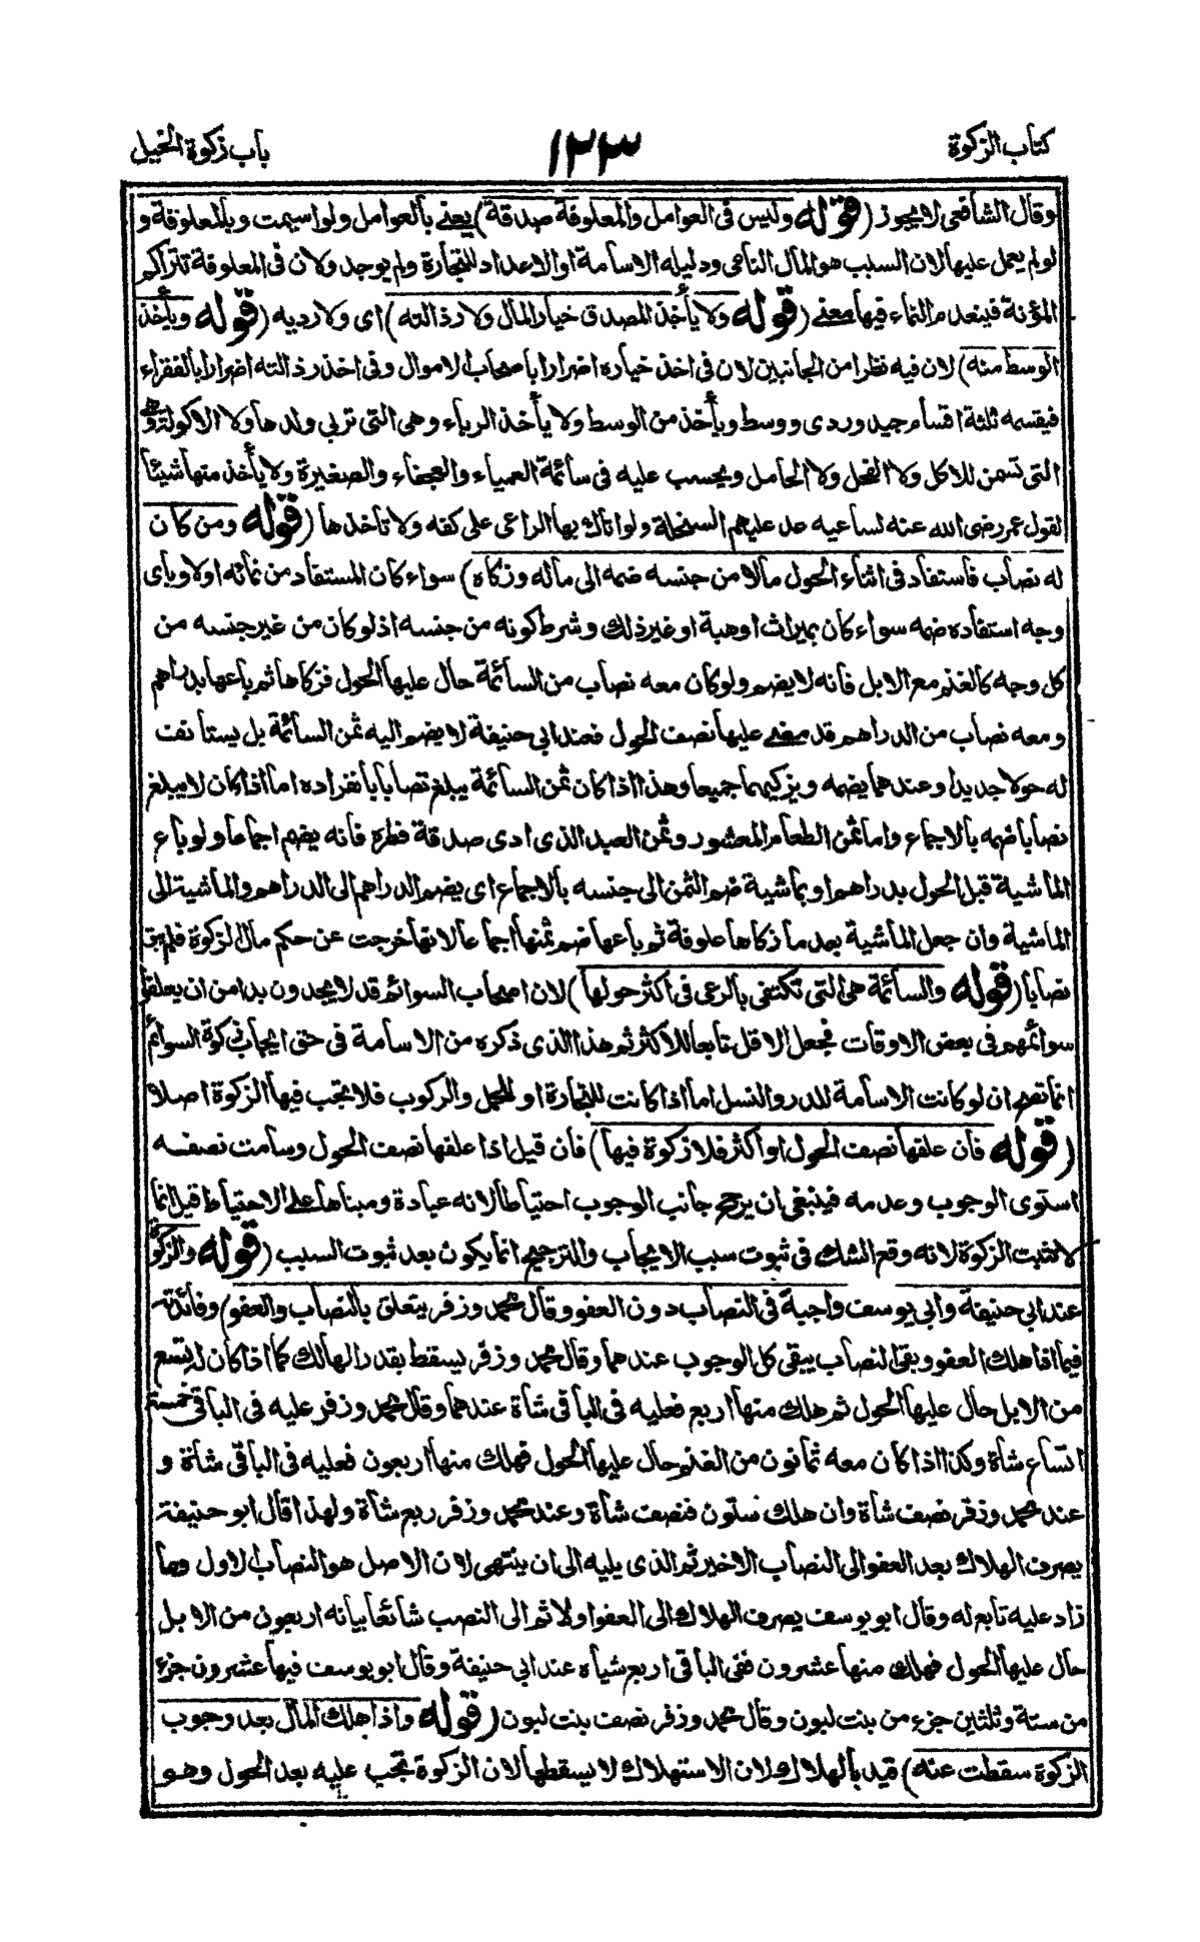 كتاب الزكوة ١٢٣ باب زكوة الخيل
وقال الشافعى لا يجوز (قوله وليس فى العوامل والمعلوفة صدقة) يعنى بالعوامل ولو اسيمت وبالمعلوفة و
لو لم يعمل عليها لان السبب هو المال النامى ودليله الاسامة او الاعداد للتجارة ولم يوجد ولان فى المعلوفة تتراكم
المؤنة فينعدم النماء فيها معنى (قوله ولا يأخذ المصدق خيار المال ولا رذالته) اى ولا رديه (قوله ويأخذ
الوسط منه) لان فيه نظرا من الجانبين لان فى اخذ خياره اضرارا باصحاب الاموال وفى اخذ رذالته اضرارا بالفقراء
فيقسمه ثلثة اقسام جيد وردى ووسط ويأخذ من الوسط ولا يأخذ الرباء وهى التى تربى ولدها ولا الاكولة وهى
التى تسمن للاكل ولا الفحل ولا الحامل ويحسب عليه فى سائمة العمياء والعجفاء والصغيرة ولا يأخذ منها شيئا
لقول عمر رضى الله عنه لساعيه عد عليهم السخلة ولو اتاك بها الراعى على كفه ولا تأخذها (قوله ومن كان
له نصاب فاستفاد فى اثناء الحول مالا من جنسه ضمه الى ماله وزكاه) سواء كان المستفاد من نمائه او لا وباى
وجه استفاده ضمه سواء كان بميراث او هبة او غير ذلك وشرط كونه من جنسه اذ لو كان من غير جنسه من
كل وجه كالغنم مع الابل فانه لا يضم ولو كان معه نصاب من السائمة حال عليها الحول فزكاها ثم باعها بدراهم
ومعه نصاب من الدراهم قد مضى عليها نصف الحول فعند ابى حنيفة لا يضم اليه ثمن السائمة بل يستأنف
له حولا جديدا وعندهما يضمه ويزكيهما جميعا وهذا اذا كان ثمن السائمة يبلغ نصابا بانفراده اما اذا كان لا يبلغ
نصابا ضمه بالاجماع واما ثمن الطعام المعشور وثمن العبد الذى ادى صدقة فطره فانه يضم اجماعا ولو باع
الماشية قبل الحول بدراهم او بماشية ضم الثمن الى جنسه بالاجماع اى يضم الدراهم الى الدراهم والماشية الى
الماشية وان جعل الماشية بعد ما زكاها علوفة ثم باعها ضم ثمنها اجماعا لانها خرجت عن حكم مال الزكوة فلم يبق
نصابا (قوله والسائمة هى التى تكتفى بالرعى فى اكثر حولها) لان اصحاب السوائم قد لا يجدون بدا من ان يعلفوا
سوائمهم فى بعض الاوقات فجعل الاقل تابعا للاكثر ثم هذا الذى ذكره من الاسامة فى حق ايجاب زكوة السوائم
انما تصح ان لو كانت الاسامة للدر والنسل اما اذا كانت للتجارة او للحمل والركوب فلا تجب فيها الزكوة اصلا
(قوله فان علفها نصف الحول او اكثر فلا زكوة فيها) فان قيل اذا علفها نصف الحول وسامت نصفه
استوى الوجوب وعدمه فينبغى ان يرجح جانب الوجوب احتياطا لانه عبادة ومبناها على الاحتياط قيل انما
لا تثبت الزكوة لانه وقع الشك فى ثبوت سبب الايجاب والترجيح انما يكون بعد ثبوت السبب (قوله والزكوة
عند ابى حنيفة وابى يوسف واجبة فى النصاب دون العفو وقال محمد وزفر يتعلق بالنصاب والعفو) وفائدته
فيما اذا هلك العفو وبقى النصاب يبقى كل الوجوب عندهما وقال محمد وزفر يسقط بقدر الهالك كما اذا كان له تسع
من الابل حال عليها الحول ثم هلك منها اربع فعليه فى الباقى شاة عندهما وقال محمد وزفر عليه فى الباقى خمسة
اتساع شاة وكذا اذا كان معه ثمانون من الغنم حال عليها الحول فهلك منها اربعون فعليه فى الباقى شاة و
عند محمد وزفر نصف شاة وان هلك ستون فنصف شاة وعند محمد وزفر ربع شاة ولهذا قال ابو حنيفة
يصرف الهلاك بعد العفو الى النصاب الاخير ثم الذى يليه الى ان ينتهى لان الاصل هو النصاب الاول وما
زاد عليه تابع له وقال ابو يوسف يصرف الهلاك الى العفو اولا ثم الى النصب شائعا بيانه اربعون من الابل
حال عليها الحول فهلك منها عشرون ففى الباقى اربع شياه عند ابى حنيفة وقال ابو يوسف فيها عشرون جزء
من ستة وثلثين جزء من بنت لبون وقال محمد وزفر نصف بنت لبون (قوله واذا هلك المال بعد وجوب
الزكوة سقطت عنه) قيد بالهلاك لان الاستهلاك لا يسقطها لان الزكوة تجب عليه بعد الحول وهو